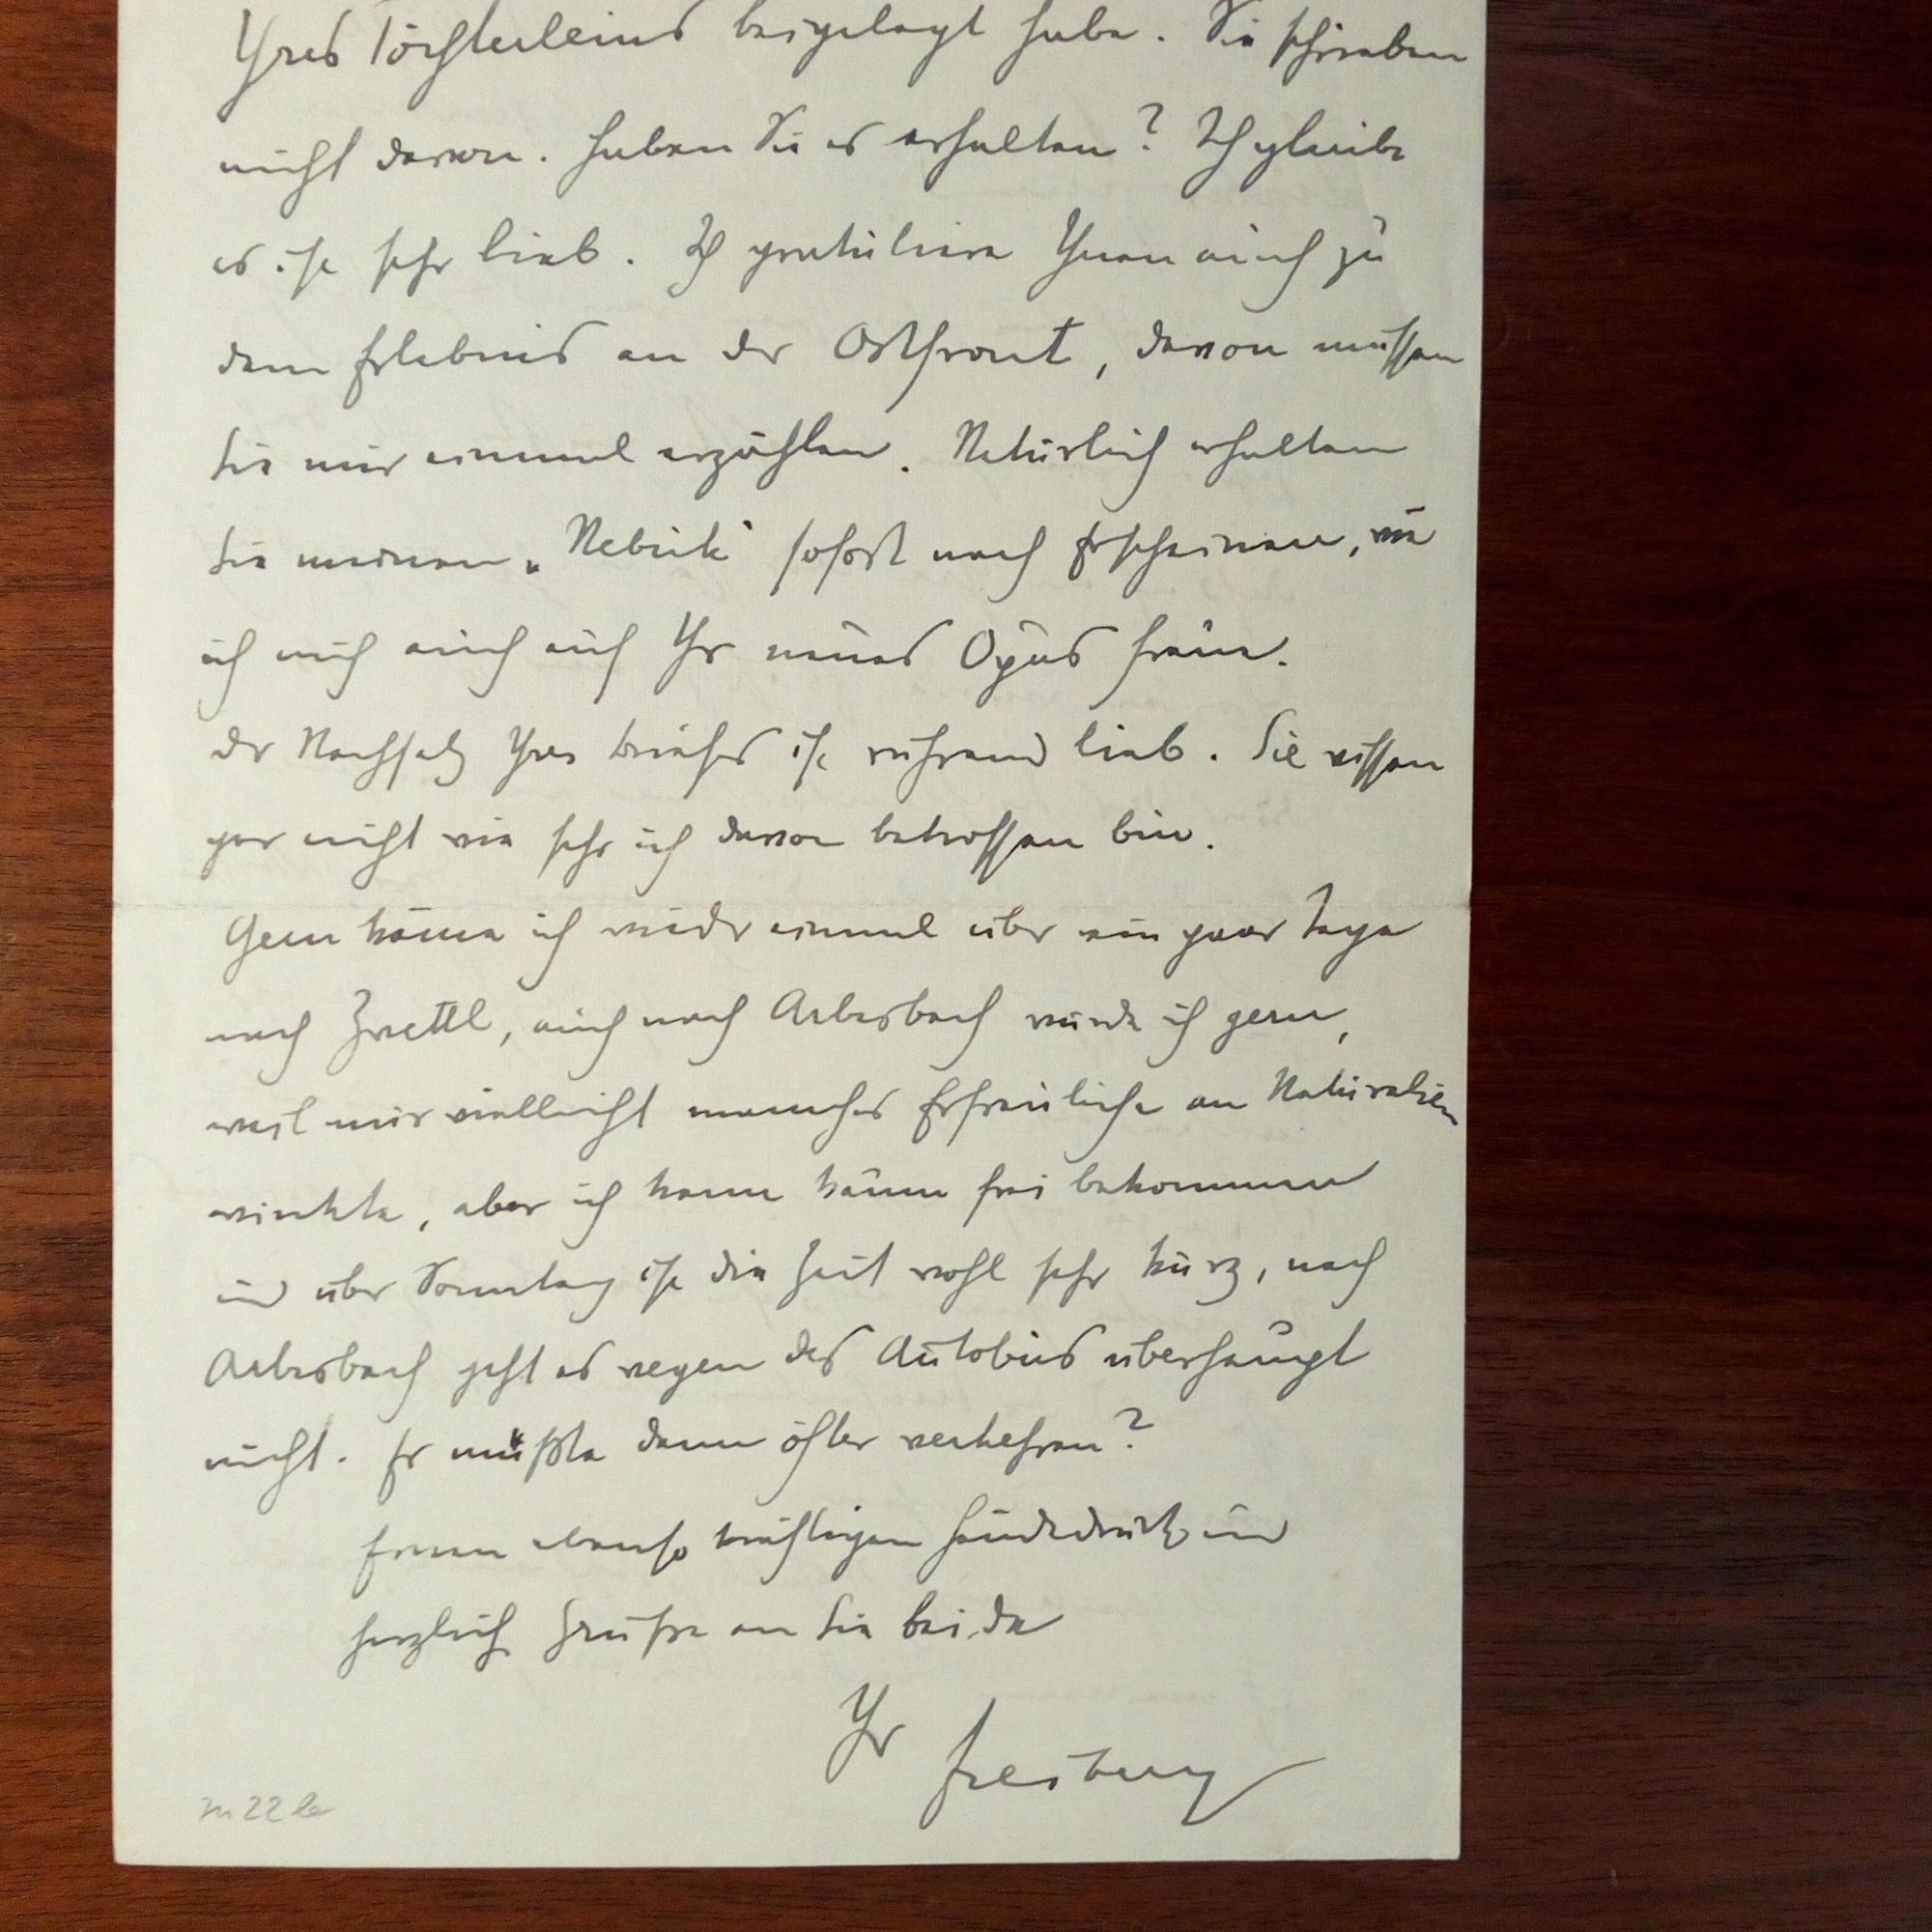 Ihres Töchterleins beigelegt habe. Sie schrieben
nicht davon. Haben Sie es erhalten? Ich glaube
es ist sehr lieb. Ich gratuliere Ihnen auch zu
dem Erlebnis an der Ostfront, davon müssen
Sie mir einmal erzählen. Natürlich erhalten
Sie meinen „Nebuk“ sofort nach Erscheinen, wie
ich mich auch auf Ihr neues Opus freue.
Der Nachsatz Ihres Briefes ist rührend lieb. Sie wissen
gar nicht wie sehr ich davon betroffen bin.
Gern käme ich wieder einmal über ein paar Tage
nach Zwettl, auch nach Arbesbach würde ich gern,
weil mir vielleicht manches Erfreuliche an Naturalien
winkte, aber ich kann kaum frei bekommen
und über Sonntag ist die Zeit wohl sehr kurz, nach
Arbesbach geht es wegen des Autobus überhaupt
nicht. Er müßte denn öfter verkehren?
Einen ebenso kräftigen Händedruck und
herzlich Grüße an Sie beide
Ihr